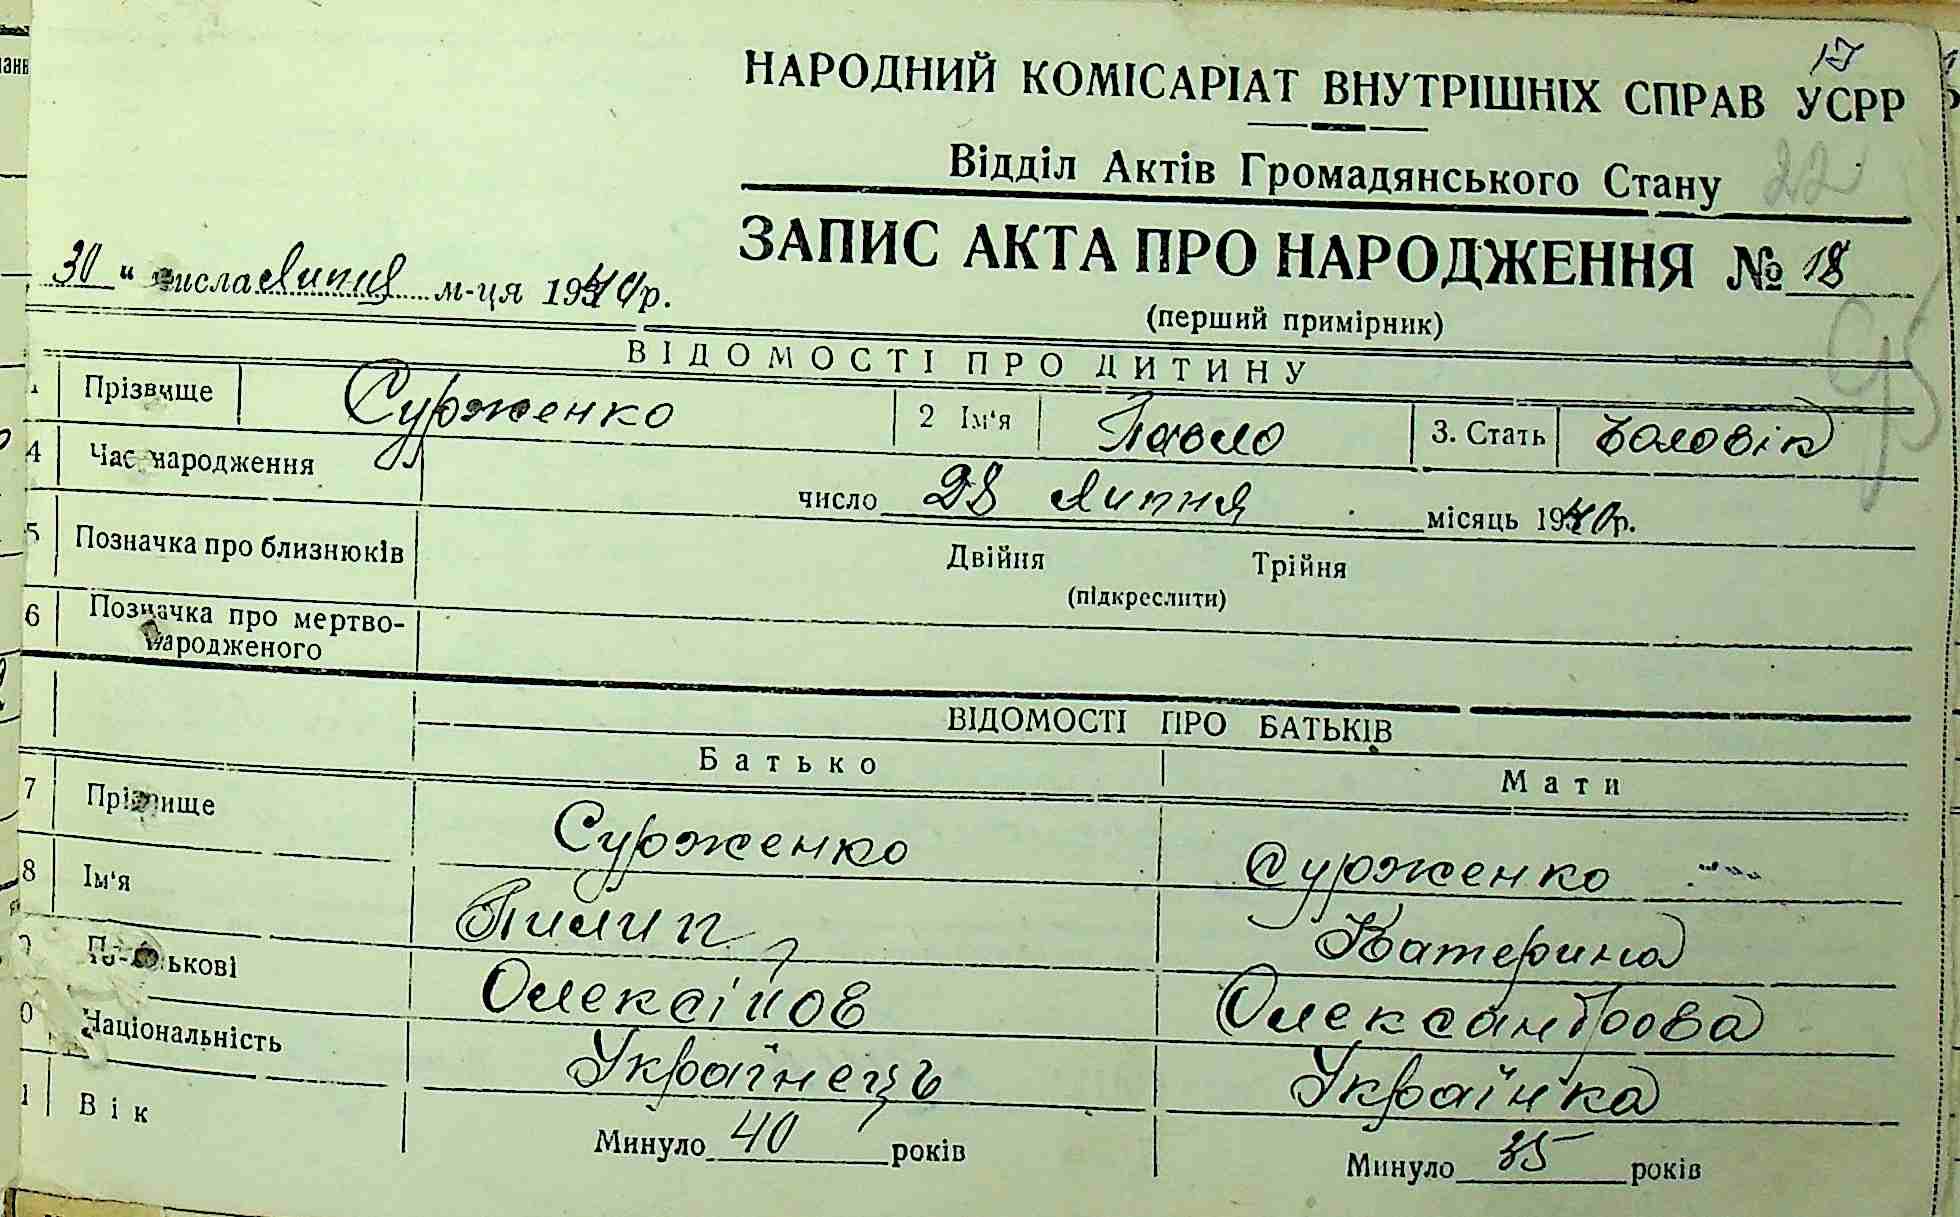 17
НАРОДНИЙ КОМІСАРІАТ ВНУТРІШНІХ СПРАВ УСРР
Відділ Актів Громадянського Стану 22
ЗАПИС АКТА ПРО НАРОДЖЕННЯ № 18
30 " числа Липня м-ця 1940 р.
(перший примірник)
95
ВІДОМОСТІ ПРО ДИТИНУ
Прізвище Сурженко 2 Ім'я Павло 3. Стать Чоловік
4 Час народження число 28 Липня місяць 1940 р.
5 Позначка про близнюків Двійня Трійня
(підкреслити)
6 Позначка про мертво-
народженого
ВІДОМОСТІ ПРО БАТЬКІВ
Батько Мати
7 Прізвище Сурженко Сурженко
8 Ім'я Пилип Катерина
По-батькові Олексійов Олександрова
0 Національність Українець Українка
1 Вік Минуло 40 років Минуло 35 років